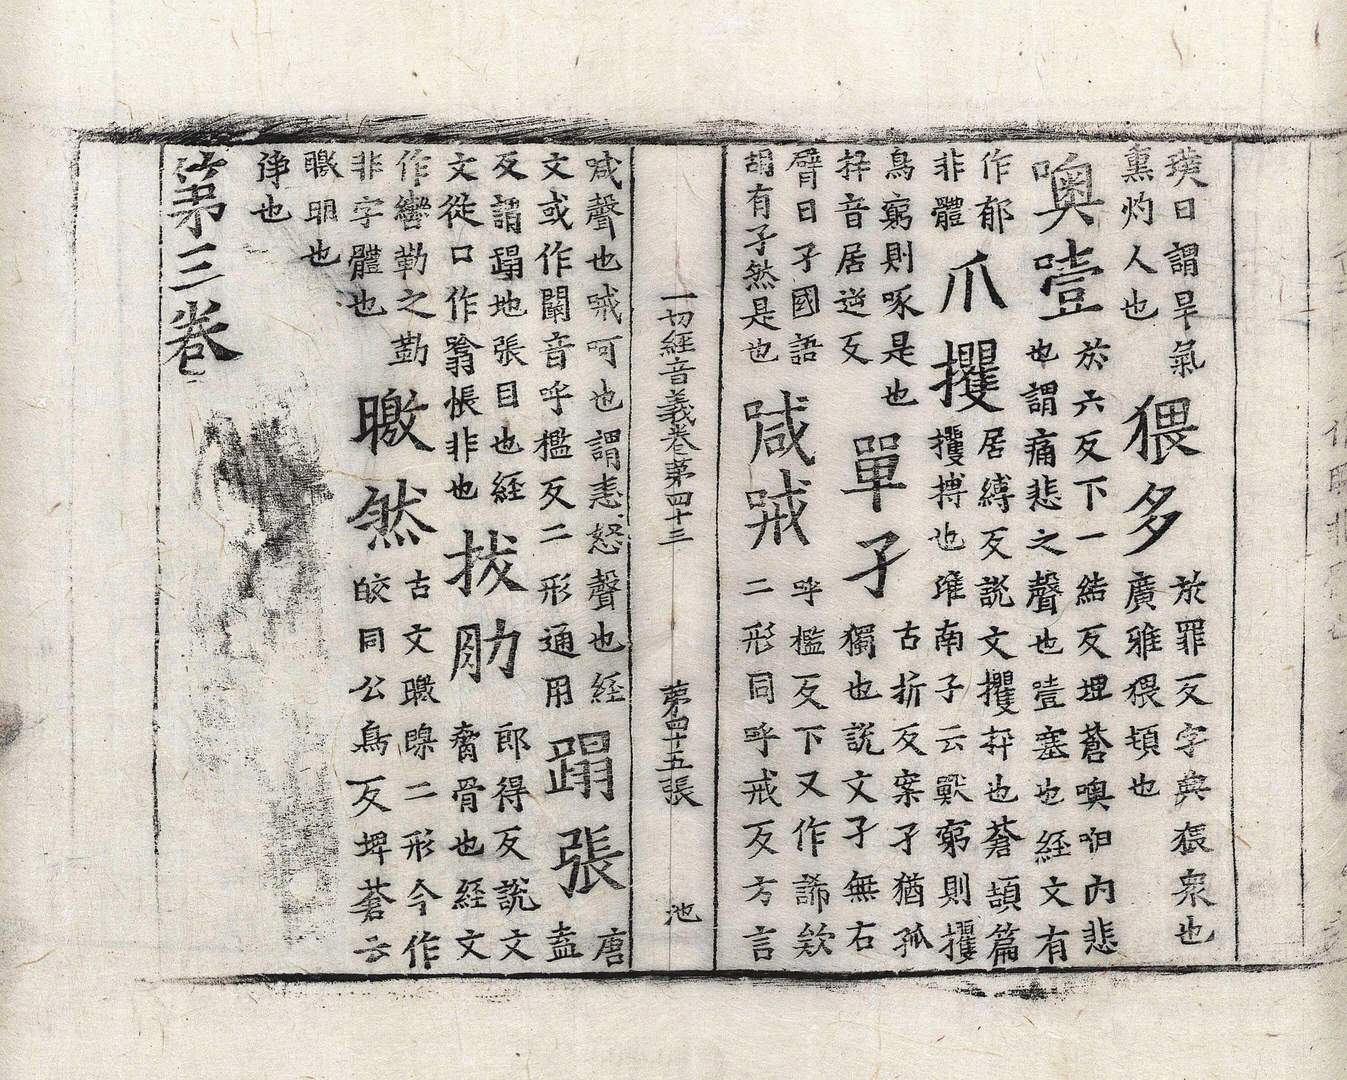 璞曰謂旱氣
熏灼人也
猥多
於罪反字典猥衆也
廣雅猥頓也
噢噎
於六反下一結反埋蒼噢咿内悲
也謂痛悲之聲也噎塞也經文有
作郁
非體
爪攫
居縛反說文攫抙也蒼頡篇
攫搏也淮南子云獸窮則攫
鳥窮則啄是也
抙音居逆反
單孑
古折反案孑猶孤
獨也說文孑無右
臂曰孑國語
胡有孑然是也
喊㖑
呼檻反下又作諦欸
二形同呼戒反方言
一切經音義卷第四十三 第四十五張 池
喊聲也㖑呵也謂恚怒聲也經
文或作闞音呼檻反二形通用
蹋張
唐
盍
反謂蹋地張目也經
文從口作嗒悵非也
拔肋
郎得反說文
脅骨也經文
作轡勒之勒
非字體也
皦然
古文皦㬠二形今作
皎同公鳥反埤蒼云
皦明也
淨也
第三卷